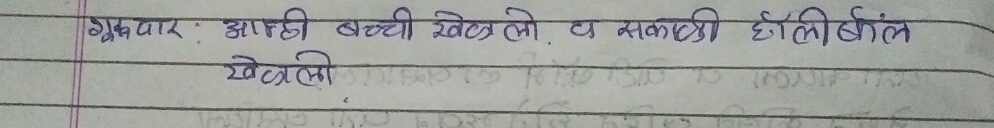 गुरुवार : आम्ही बच्ची खेळलो. व सकाळी हॉलीबॉल
खेळलो